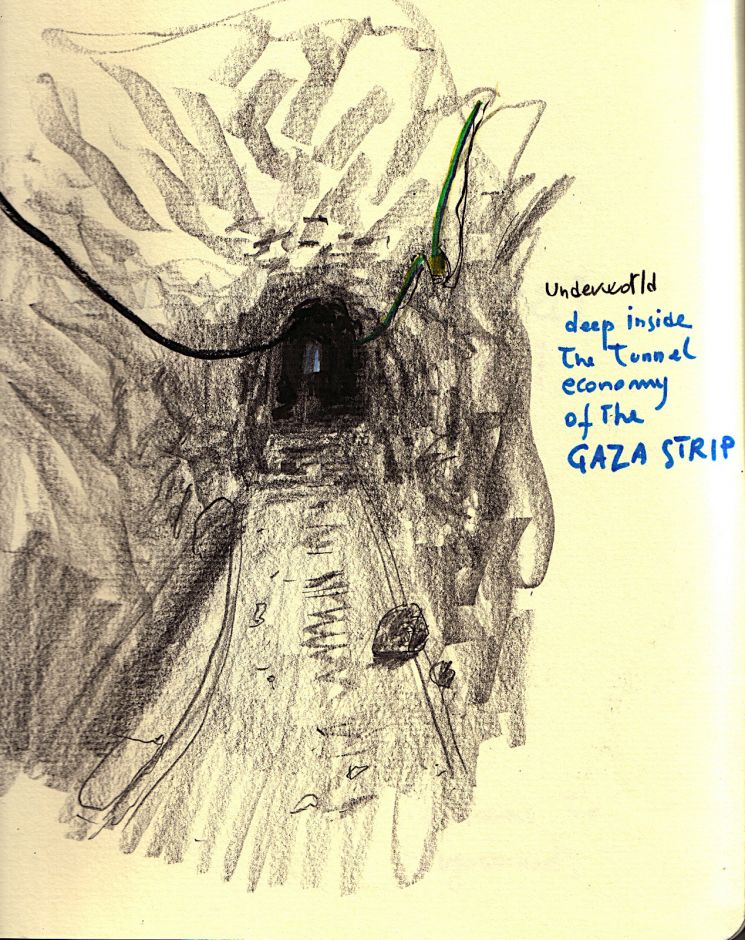 Underworld
deep inside
the Tunnel
economy
of the
GAZA STRIP